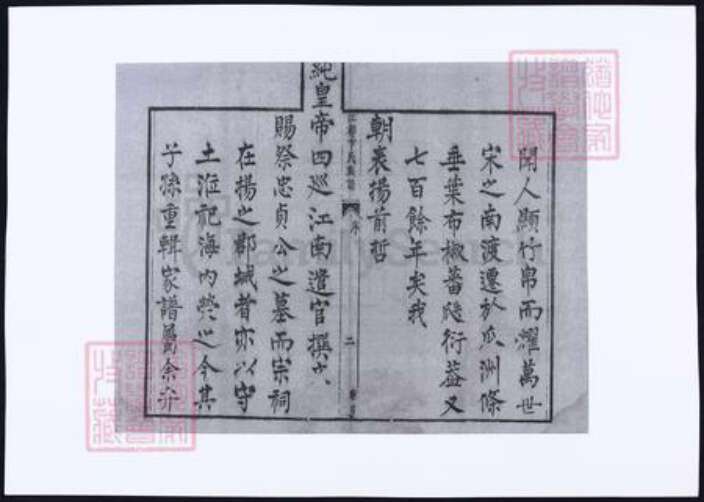 聞人顯竹帛而耀萬世
宋之南渡遷於瓜洲條
垂葉布椒蕃瓞衍益又
七百餘年矣我
朝表揚前哲
江都卞氏族譜
序
二
純皇帝四巡江南遣官撰文
賜祭忠貞公之墓而宗祠
在揚之郡城者亦以守
土派祀海內榮之今其
子孫重輯家譜屬余弁